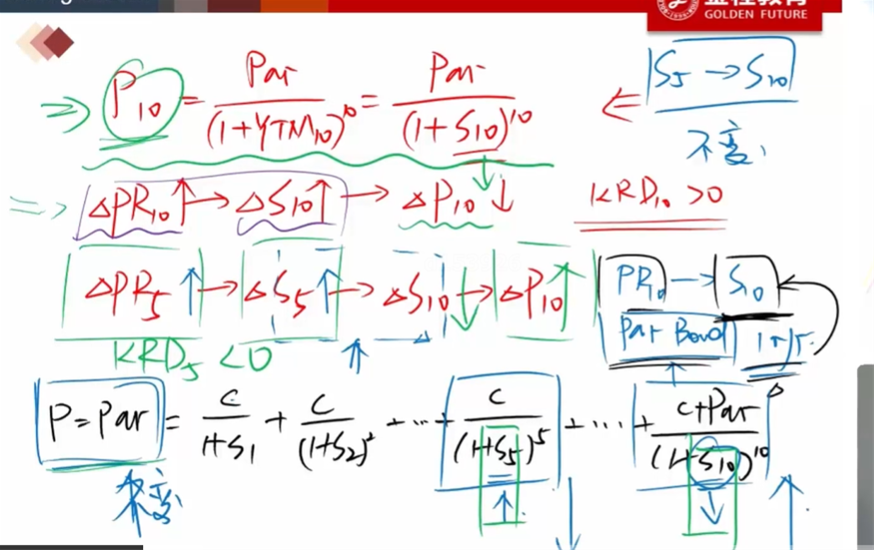 GOLDEN FUTURE
⇒ P₁₀ = Par / (1+YTM₁₀)¹⁰ = Par / (1+S₁₀)¹⁰ ← S₅ → S₁₀
不变
⇒ △PR₁₀↑ → △S₁₀↑ → △P₁₀↓ KRD₁₀ >0
△PR₅↑ → △S₅↑ → △S₁₀↓ → △P₁₀↑ PR₁₀ → S₁₀
KRD₅ <0 Par Bond
P=Par = C / 1+S₁ + C / (1+S₂)² + ... + C / (1+S₅)⁵ + ... + C+Par / (1+S₁₀)¹⁰
不变 ↑ ↓ ↓ ↑